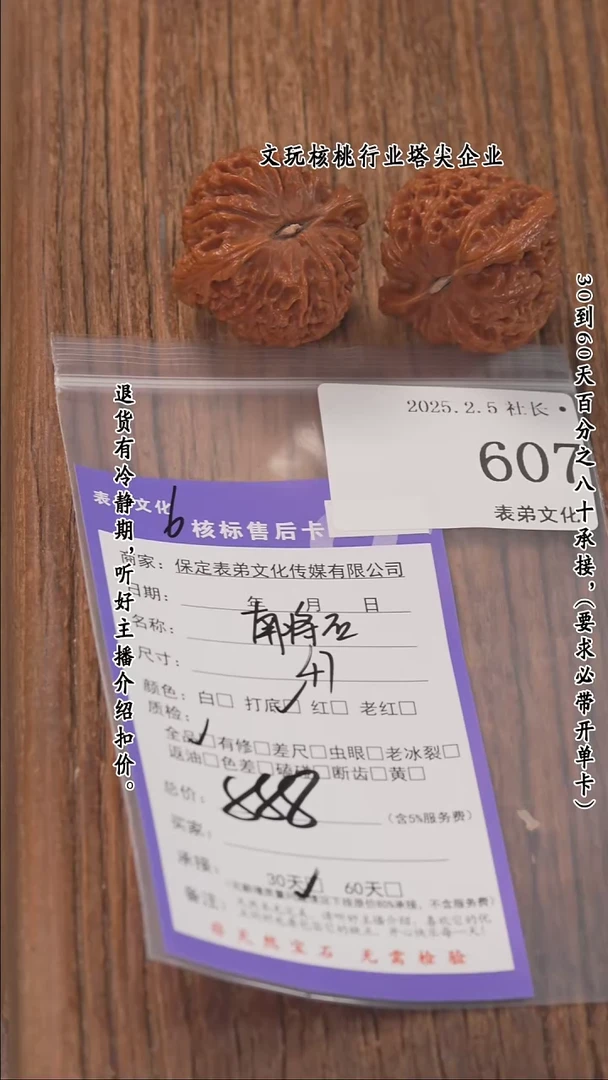 文玩核桃行业塔尖企业
30到60天百分之八十承接,(要求必带开单卡)
退货有冷静期,听好主播介绍扣价。
2025.2.5 社长·
607
表弟文化
表弟文化
6
核标售后卡
商家: 保定表弟文化传媒有限公司
日期: 年 月 日
名称: 南将石
尺寸: 47
颜色: 白□ 打底☑ 红□ 老红□
质检:
全品☑有修□差尺□虫眼□老冰裂□
返油□色差□磕碰□断齿□黄□
总价: 888 (含5%服务费)
买家:
承接: 30天☑ 60天□
备注:
非天然宝石 无需检验